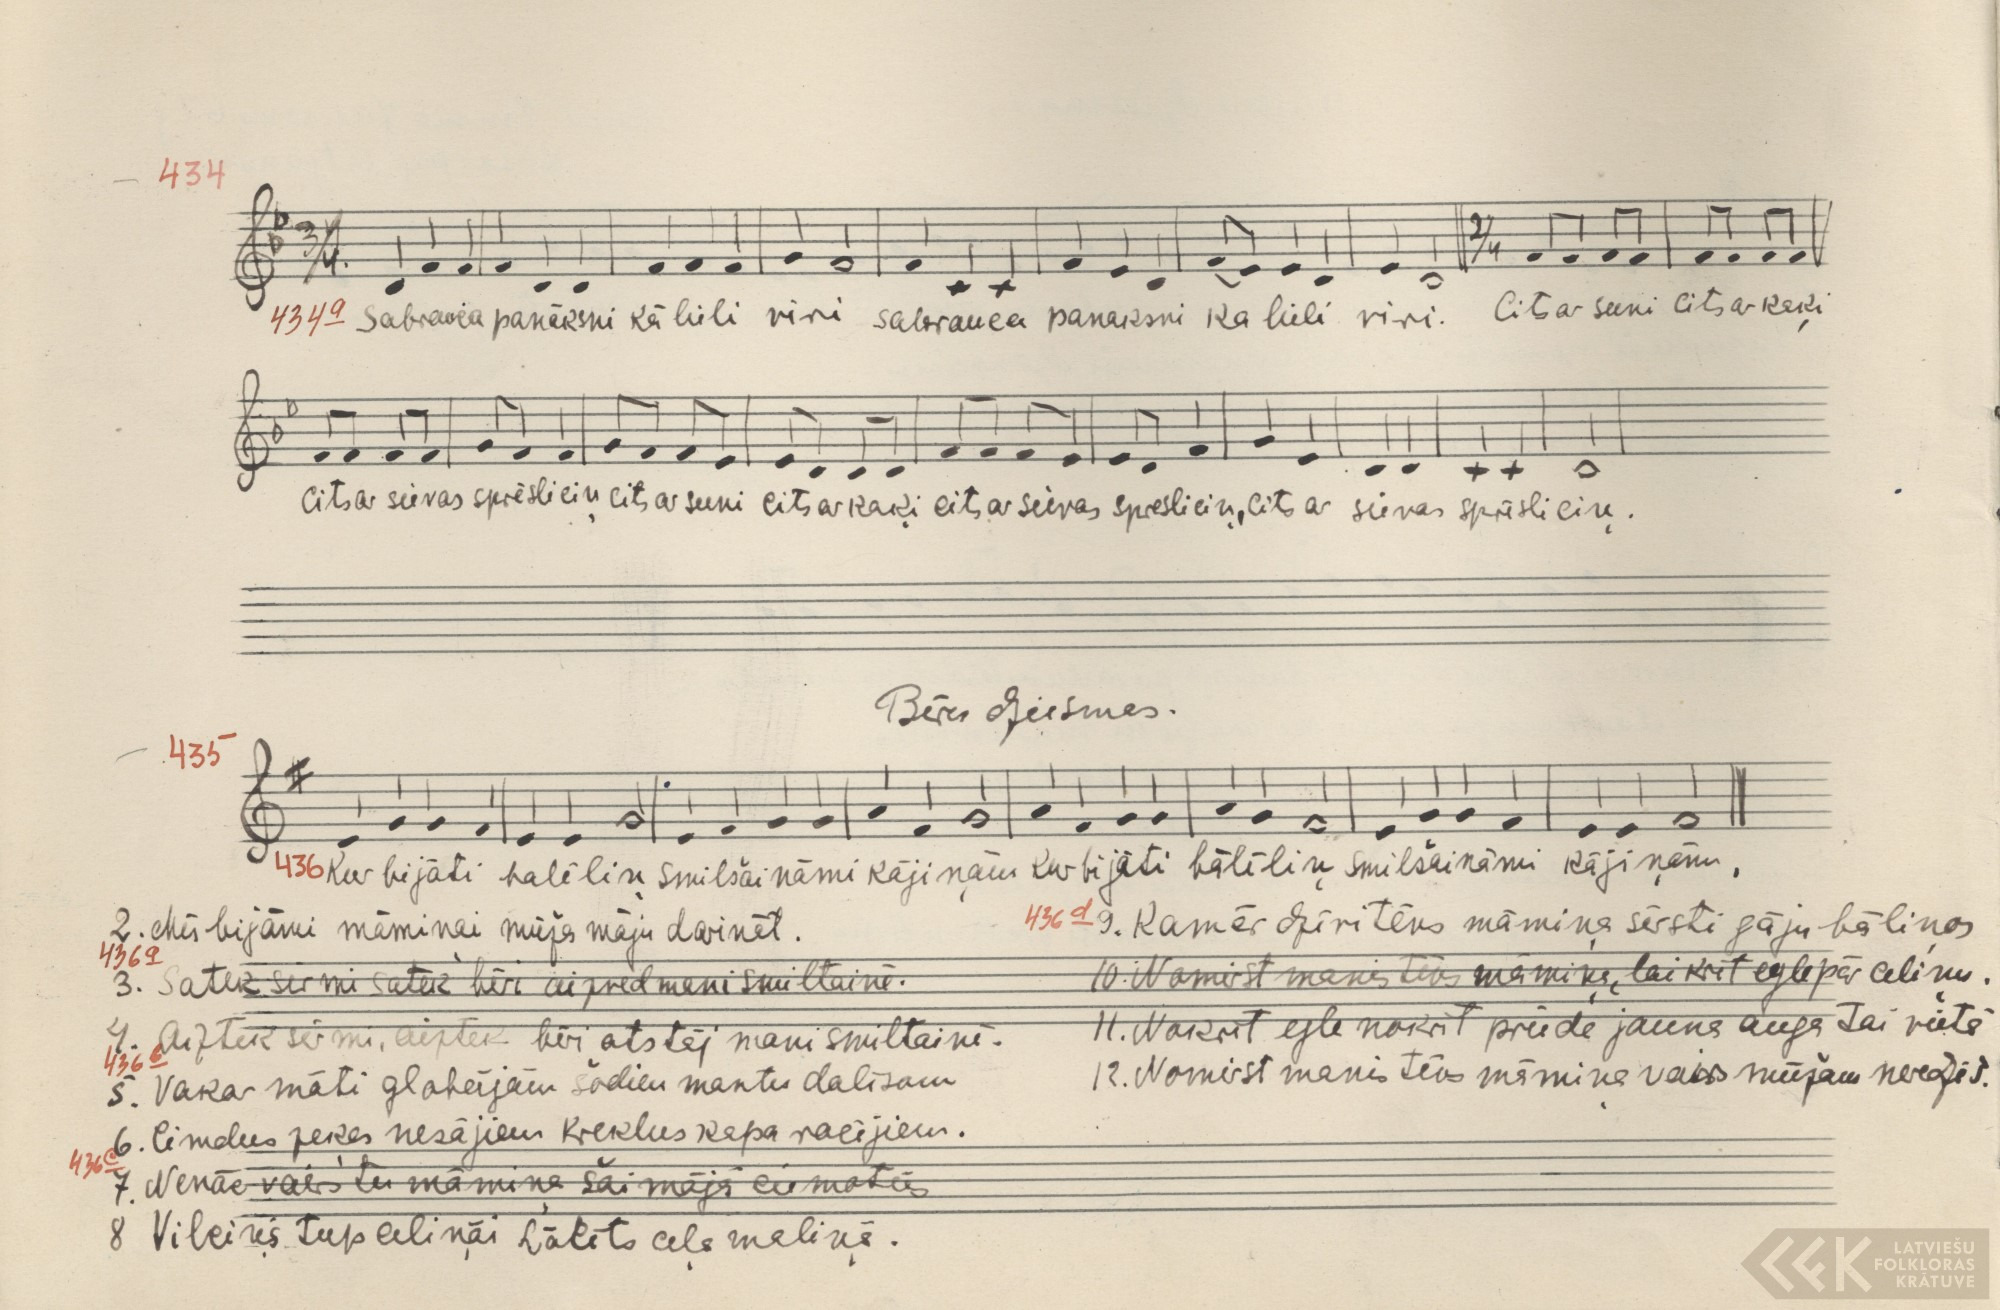 434
3/4. 2/4
434a Sabrauca panāksni kā lieli vīri sabrauca panaksni ka lieli vīri. Cits ar suni Cits ar kaķi
Cits ar sievas sprēslīciņ cits ar suni cits ar kaķi cits ar sievas spreslīciņ, Cits ar sievas sprēslīciņ.
Bēru dziesmas.
435
436 Kur bijāti balēliņ smilšaināmi kājiņām Kur bijāti bālēliņ smilšaināmi kājiņām,
2. Mēs bijāmi māmiņai mūža māju darināt.
436a
3. Satek sērmi satek bēri aizpred mani smiltainē.
4. Aiztek sērmi, aiztek bēri atstāj mani smiltainē.
5. Vakar māti glabājām šodien mantu dalīsam
6. Cimdus zekes nesājiem Kreklus kapa racējiem.
436c
7. Nenāc vairs tu māmiņa šai mājā ciemoties
8 Vilciņš tup celiņāi Lācīts ceļa maliņā.
436d 9. Kamēr dzīvi tēvs māmiņa sērsti gāju bāliņos
10. Nomirst manis tēvs māmiņa, lai krīt egle pār celiņu.
11. Nokrīt egle nokrīt priede jauna auga tai vietā
12. Nomirst manis tēvs māmiņa vairs mūžam neredzēt.
LATVIEŠU
FOLKLORAS
KRĀTUVE